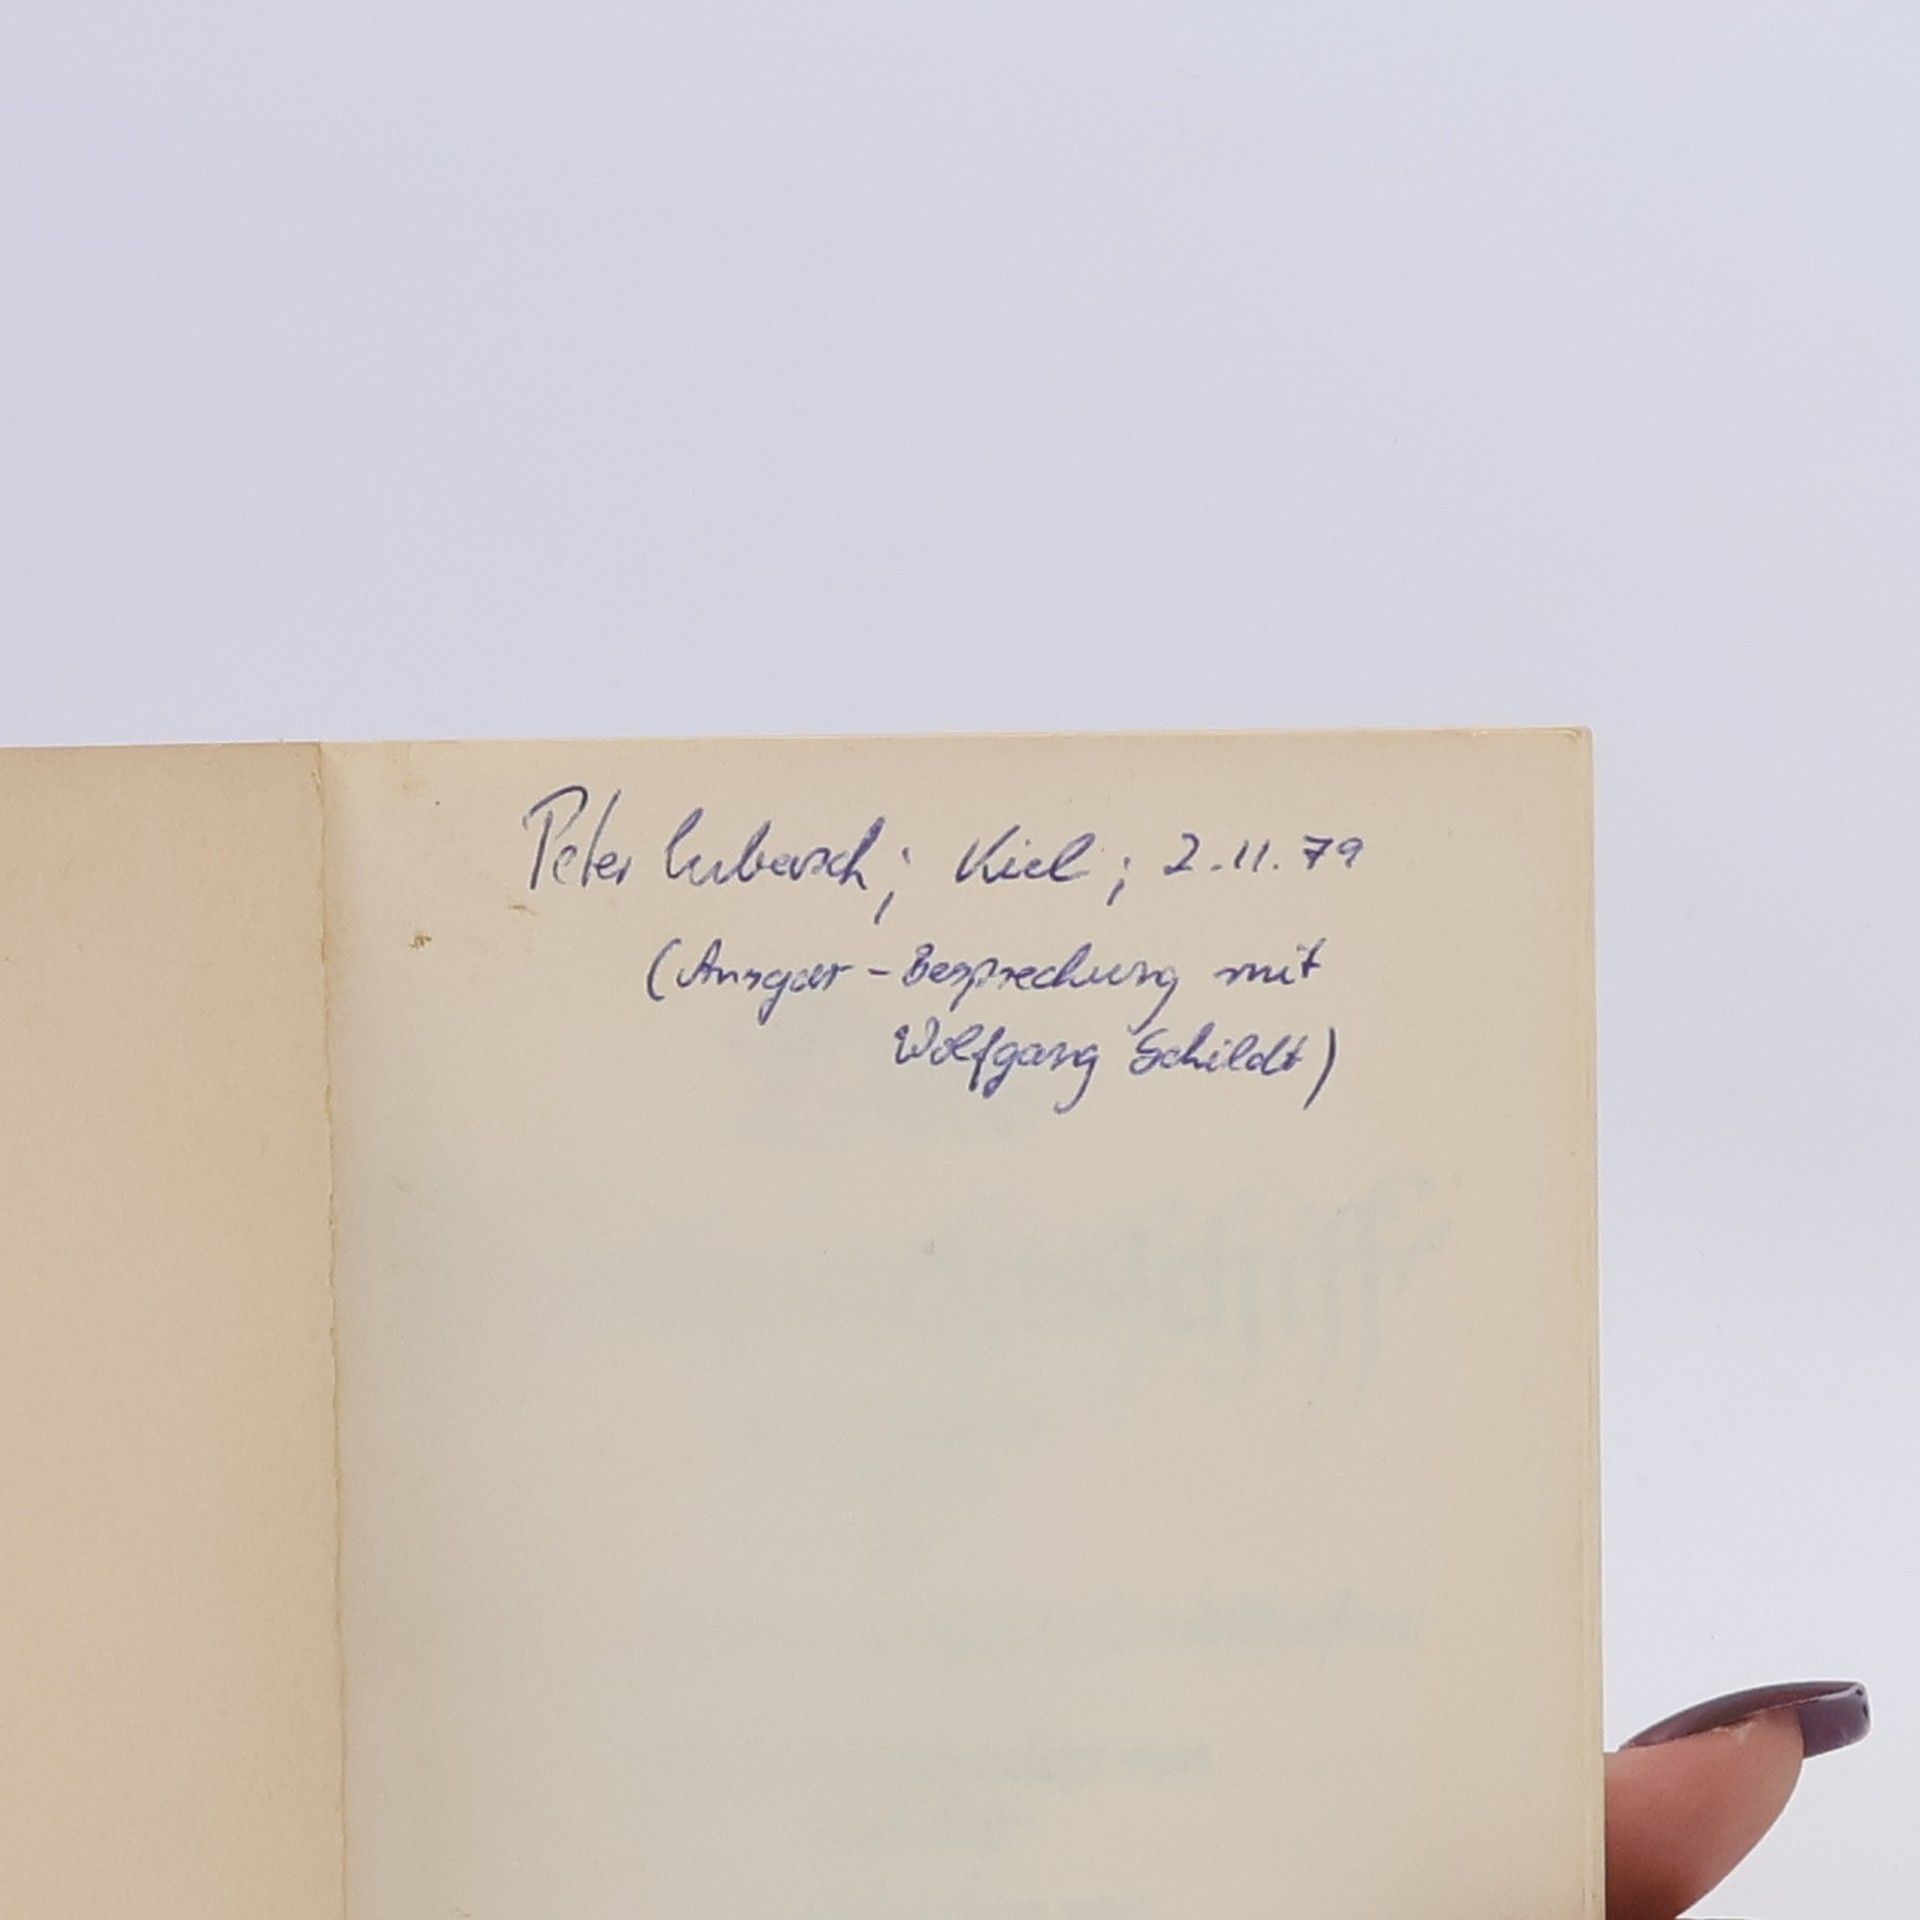 Peter Lubasch; Kiel; 2.11.79
(Ansgar-Besprechung mit
Wolfgang Schildt)